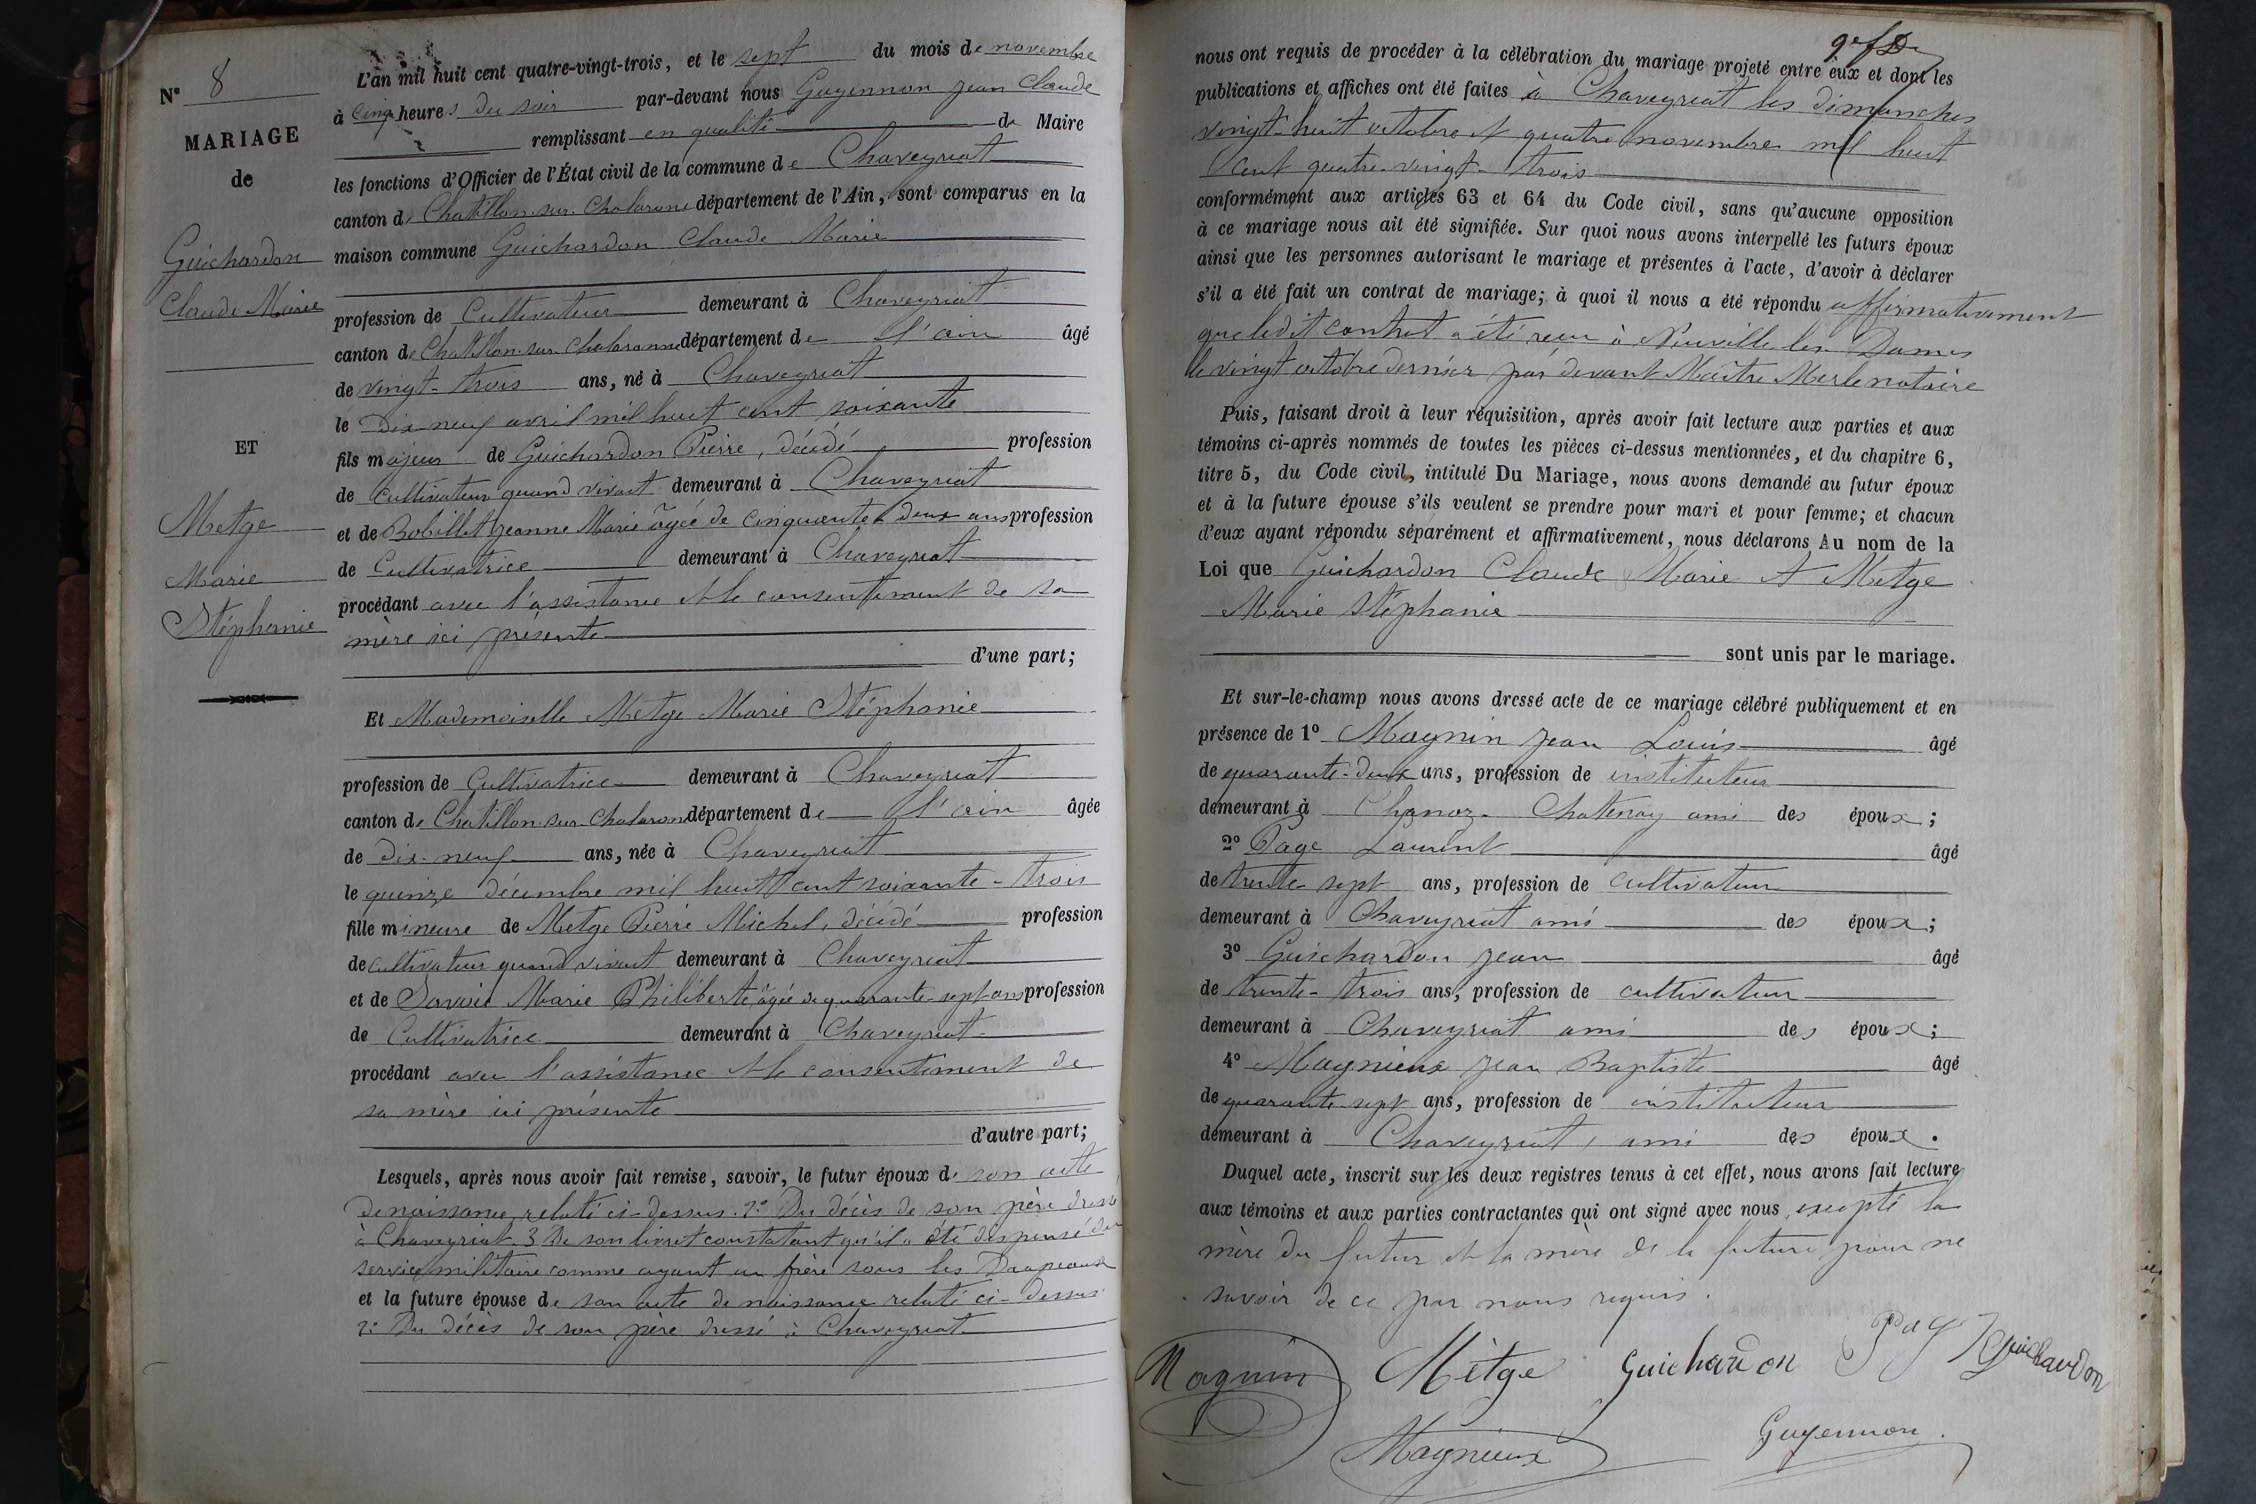 N° 8
MARIAGE
de
Guichardon
Claude Marie
ET
Metge
Marie
Stéphanie
L'an mil huit cent quatre-vingt-trois, et le sept du mois de novembre
à cinq heures du soir par-devant nous Guyennon Jean Claude
remplissant en qualité de Maire
les fonctions d'Officier de l'État civil de la commune de Chaveyriat
canton de Chatillon-sur-Chalaronne département de l'Ain, sont comparus en la
maison commune Guichardon Claude Marie
profession de Cultivateur demeurant à Chaveyriat
canton de Chatillon-sur-Chalaronne département de l'ain âgé
de vingt-trois ans, né à Chaveyriat
le dix-neuf avril mil huit cent soixante
fils majeur de Guichardon Pierre, décédé profession
de cultivateur quand vivait demeurant à Chaveyriat
et de Bobillet Jeanne Marie âgée de cinquante deux ans profession
de Cultivatrice demeurant à Chaveyriat
procédant avec l'assistance et le consentement de sa
mère ici présente
d'une part;
Et Mademoiselle Metge Marie Stéphanie
profession de Cultivatrice demeurant à Chaveyriat
canton de Chatillon-sur-Chalaronne département de l'ain âgée
de dix-neuf ans, née à Chaveyriat
le quinze décembre mil huit cent soixante-trois
fille mineure de Metge Pierre Michel, décédé profession
de cultivateur quand vivait demeurant à Chaveyriat
et de Savoie Marie Philiberte âgée de quarante-sept ans profession
de Cultivatrice demeurant à Chaveyriat
procédant avec l'assistance et le consentement de
sa mère ici présente
d'autre part;
Lesquels, après nous avoir fait remise, savoir, le futur époux de son acte
de naissance relaté ci-dessus. 2° Du décès de son père dressé
à Chaveyriat 3 De son livret constatant qu'il a été dispensé du
service militaire comme ayant un frère sous les Drapeaux
et la future épouse de son acte de naissance relaté ci-dessus
2° Du décès de son père dressé à Chaveyriat
nous ont requis de procéder à la célébration du mariage projeté entre eux et dont les
publications et affiches ont été faites à Chaveyriat les dimanches
vingt-huit octobre et quatre novembre mil huit
cent quatre-vingt-trois
conformément aux articles 63 et 64 du Code civil, sans qu'aucune opposition
à ce mariage nous ait été signifiée. Sur quoi nous avons interpellé les futurs époux
ainsi que les personnes autorisant le mariage et présentes à l'acte, d'avoir à déclarer
s'il a été fait un contrat de mariage; à quoi il nous a été répondu affirmativement
que ledit contrat a été reçu à Neuville les Dames
le vingt octobre dernier par devant Maître Merle notaire
Puis, faisant droit à leur réquisition, après avoir fait lecture aux parties et aux
témoins ci-après nommés de toutes les pièces ci-dessus mentionnées, et du chapitre 6,
titre 5, du Code civil, intitulé Du Mariage, nous avons demandé au futur époux
et à la future épouse s'ils veulent se prendre pour mari et pour femme; et chacun
d'eux ayant répondu séparément et affirmativement, nous déclarons Au nom de la
Loi que Guichardon Claude Marie et Metge
Marie Stéphanie
sont unis par le mariage.
Et sur-le-champ nous avons dressé acte de ce mariage célébré publiquement et en
présence de 1° Magnin Jean Louis âgé
de quarante-deux ans, profession de instituteur
demeurant à Chanoz-Chatenay ami des époux;
2° Page Laurent âgé
de trente-sept ans, profession de cultivateur
demeurant à Chaveyriat ami des époux;
3° Guichardon Jean âgé
de trente-trois ans, profession de cultivateur
demeurant à Chaveyriat ami des époux;
4° Magnieux Jean Baptiste âgé
de quarante-sept ans, profession de instituteur
demeurant à Chaveyriat, ami des époux.
Duquel acte, inscrit sur les deux registres tenus à cet effet, nous avons fait lecture
aux témoins et aux parties contractantes qui ont signé avec nous, excepté la
mère du futur et la mère de la future pour ne
savoir de ce par nous requis.
Magnin Mètge Guichardon Page Guichardon
Magnieux Guyennon